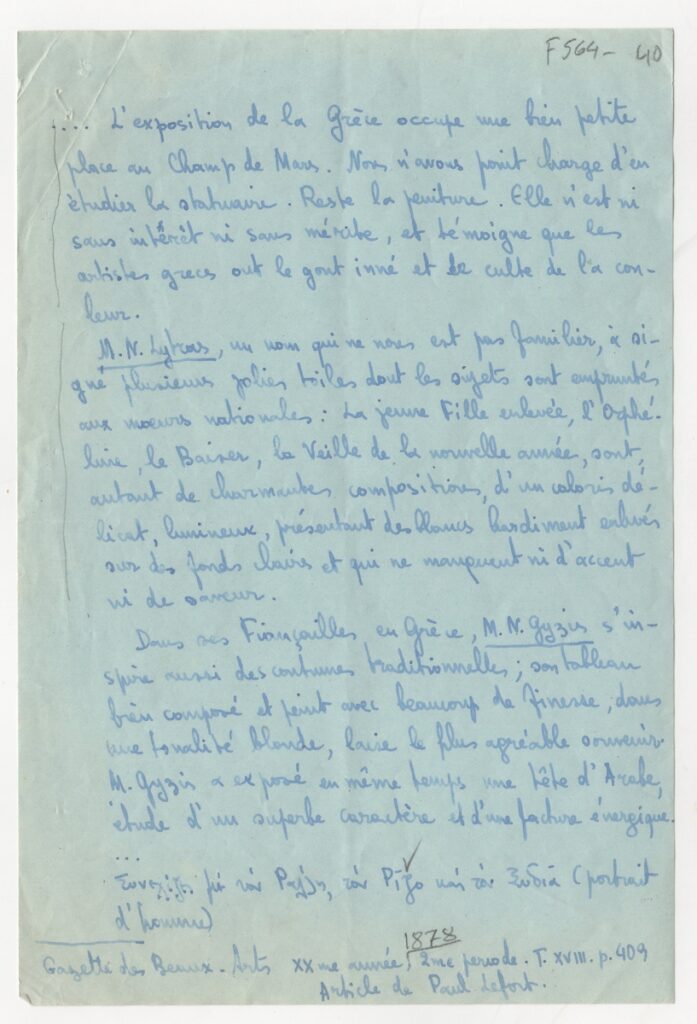 F564- 40
.... L'exposition de la Grèce occupe une bien petite
place au Champ de Mars. Nous n'avons point charge d'en
étudier la statuaire. Reste la peniture. Elle n'est ni
sans intérêt ni sans mérite, et témoigne que les
artistes grecs ont le gout inné et le culte de la cou-
leur.
M. N. Lytras, un nom qui ne nous est pas familier, à si-
gné plusieurs jolies toiles dont les sujets sont empruntés
aux mœurs nationales: La jeune Fille enlevée, l'Orphé-
line, le Baiser, la Veille de la nouvelle année, sont,
autant de charmantes compositions, d'un coloris dé-
licat, lumineux, présentant des blancs hardiment enlevés
sur des fonds clairs et qui ne manquent ni d'accent
ni de saveur.
Dans ses Fiançailles en Grèce, M. N. Gyzis s'in-
spire aussi des coutumes traditionnelles; son tableau
bien composé et peint avec beaucoup de finesse, dans
une tonalité blonde, laisse le plus agréable souvenir.
M. Gyzis a exposé en même temps une tête d'Arabe,
étude d'un superbe caractère et d'une facture énergique.
...
Συνεχίζει μέ τόν Ράλλη, τόν Ρίζο καί τόν Ξυδιά (portrait
d'homme)
1878
Gazette des Beaux-Arts XXme année, 2me periode. T. XVIII. p. 409
Article de Paul Lefort.